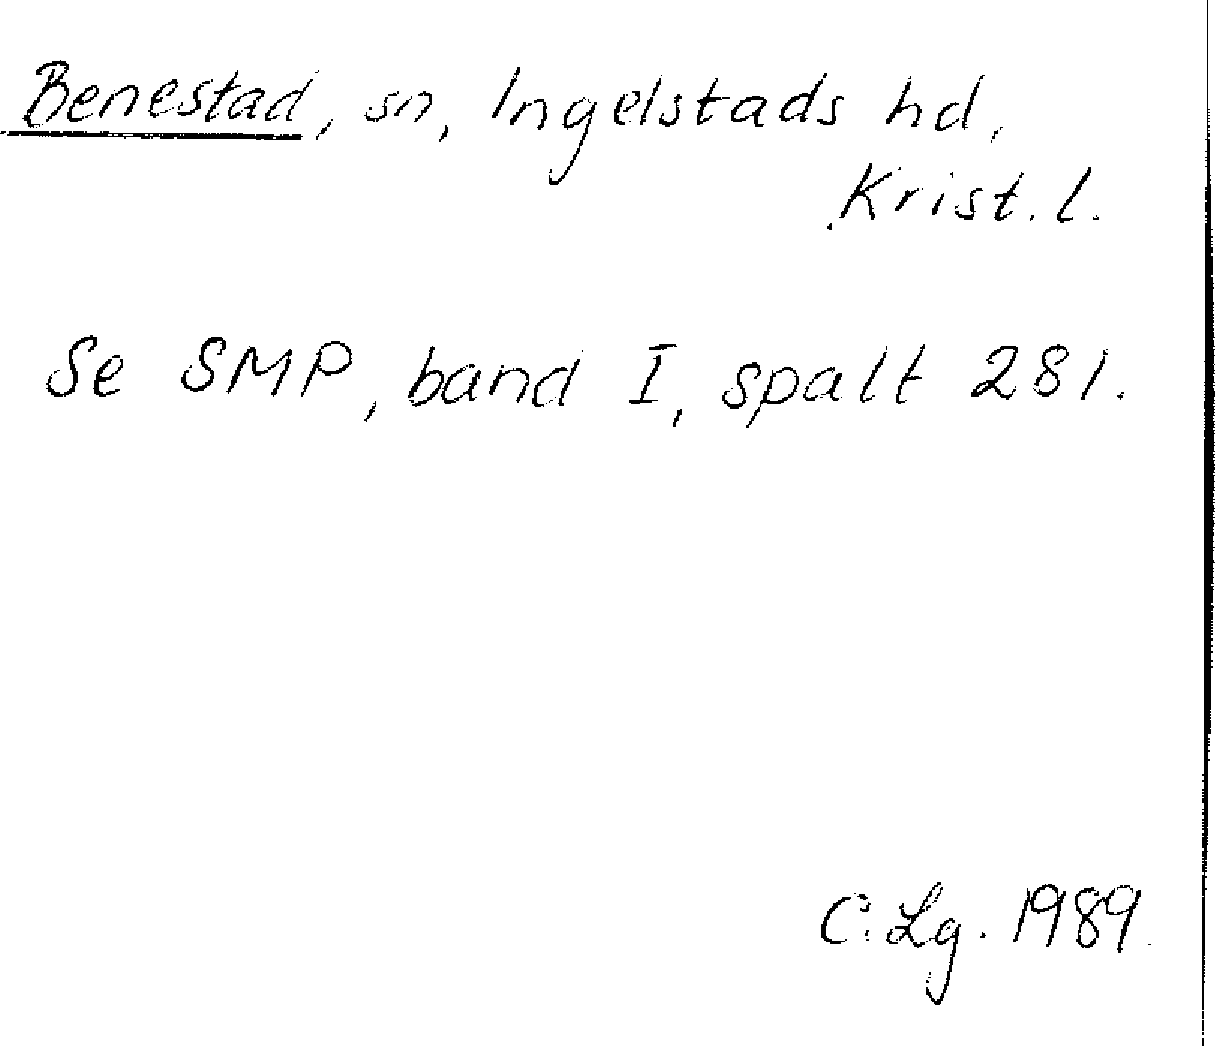 Benestad, sn, Ingelstads hd,
Krist. l.
Se SMP, band I, spalt 281.
C. Lg. 1989.